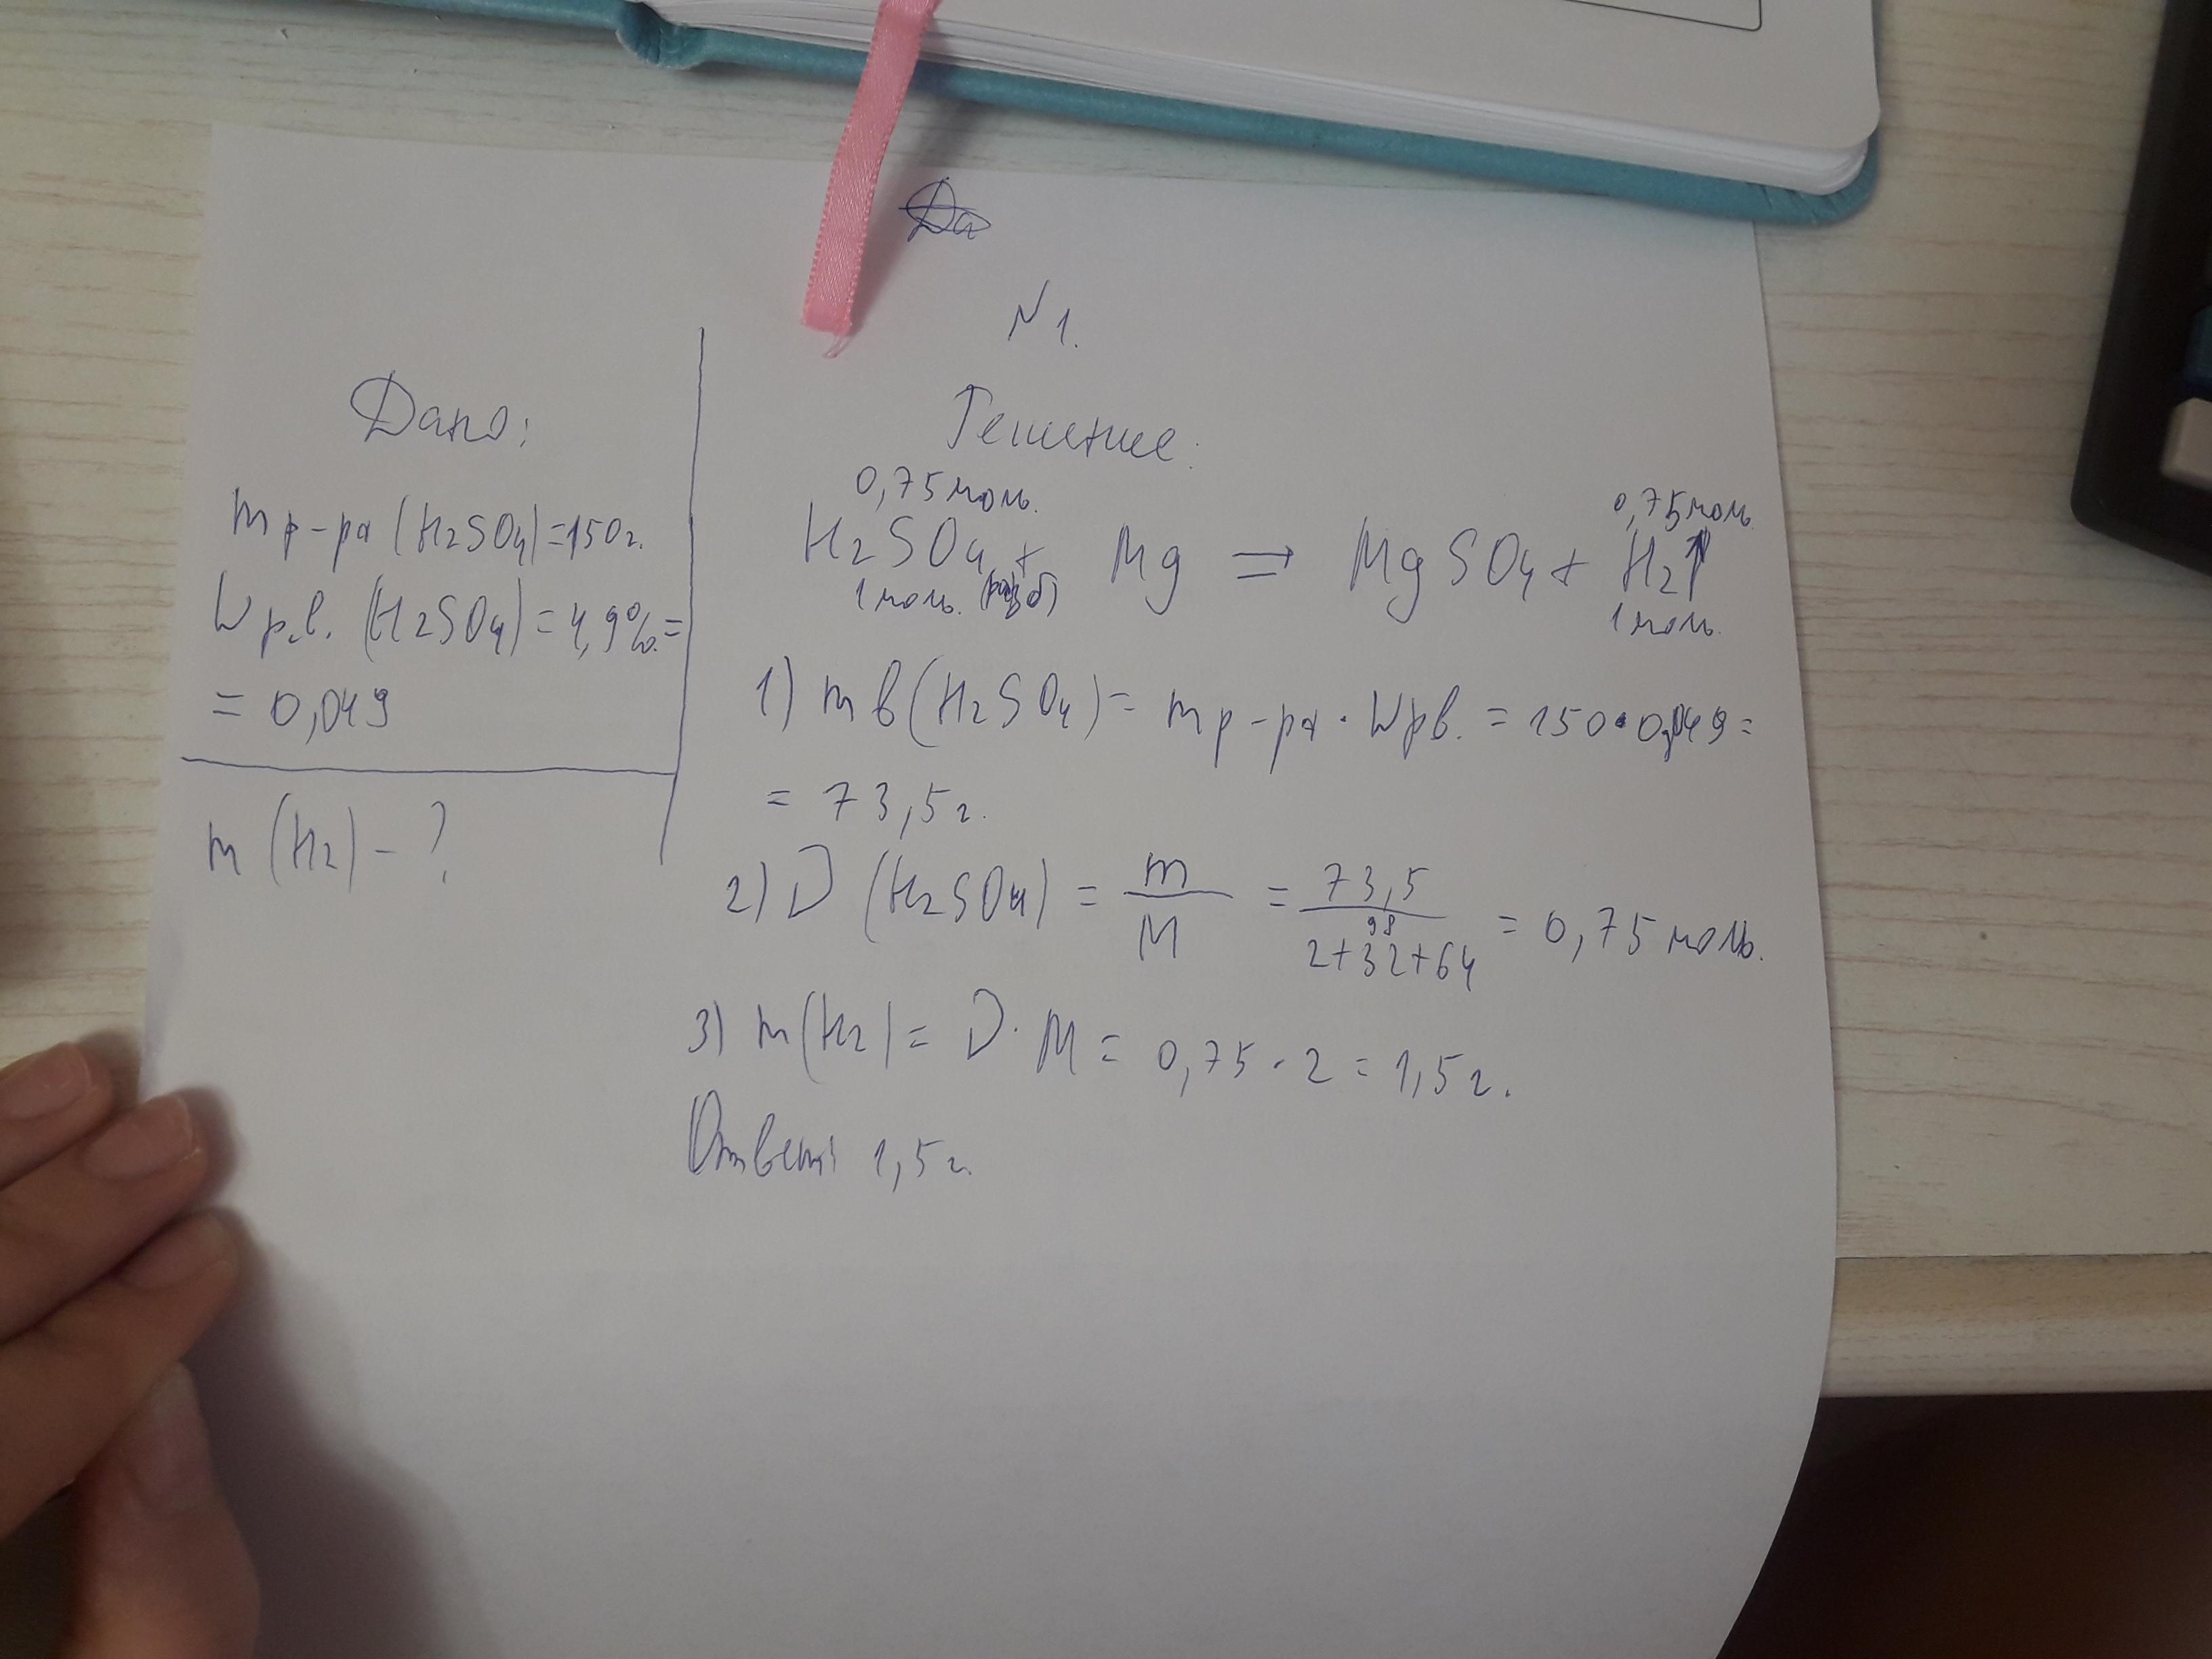 Да
N 1.
Дано:
m р-ра (H2SO4)=150г.
W р.в. (H2SO4)=4,9%=
= 0,049
m (H2) - ?
Решение:
0,75моль. 0,75моль.
H2SO4 + Mg = MgSO4 + H2↑
1моль. (разб) 1моль.
1) m в (H2SO4) = m р-ра · W рв. = 150·0,049=
= 73,5г.
2) ν (H2SO4) = m/M = 73,5/2+32+64 98 = 0,75 моль.
3) m(H2) = ν · M = 0,75 · 2 = 1,5г.
Ответ: 1,5г.